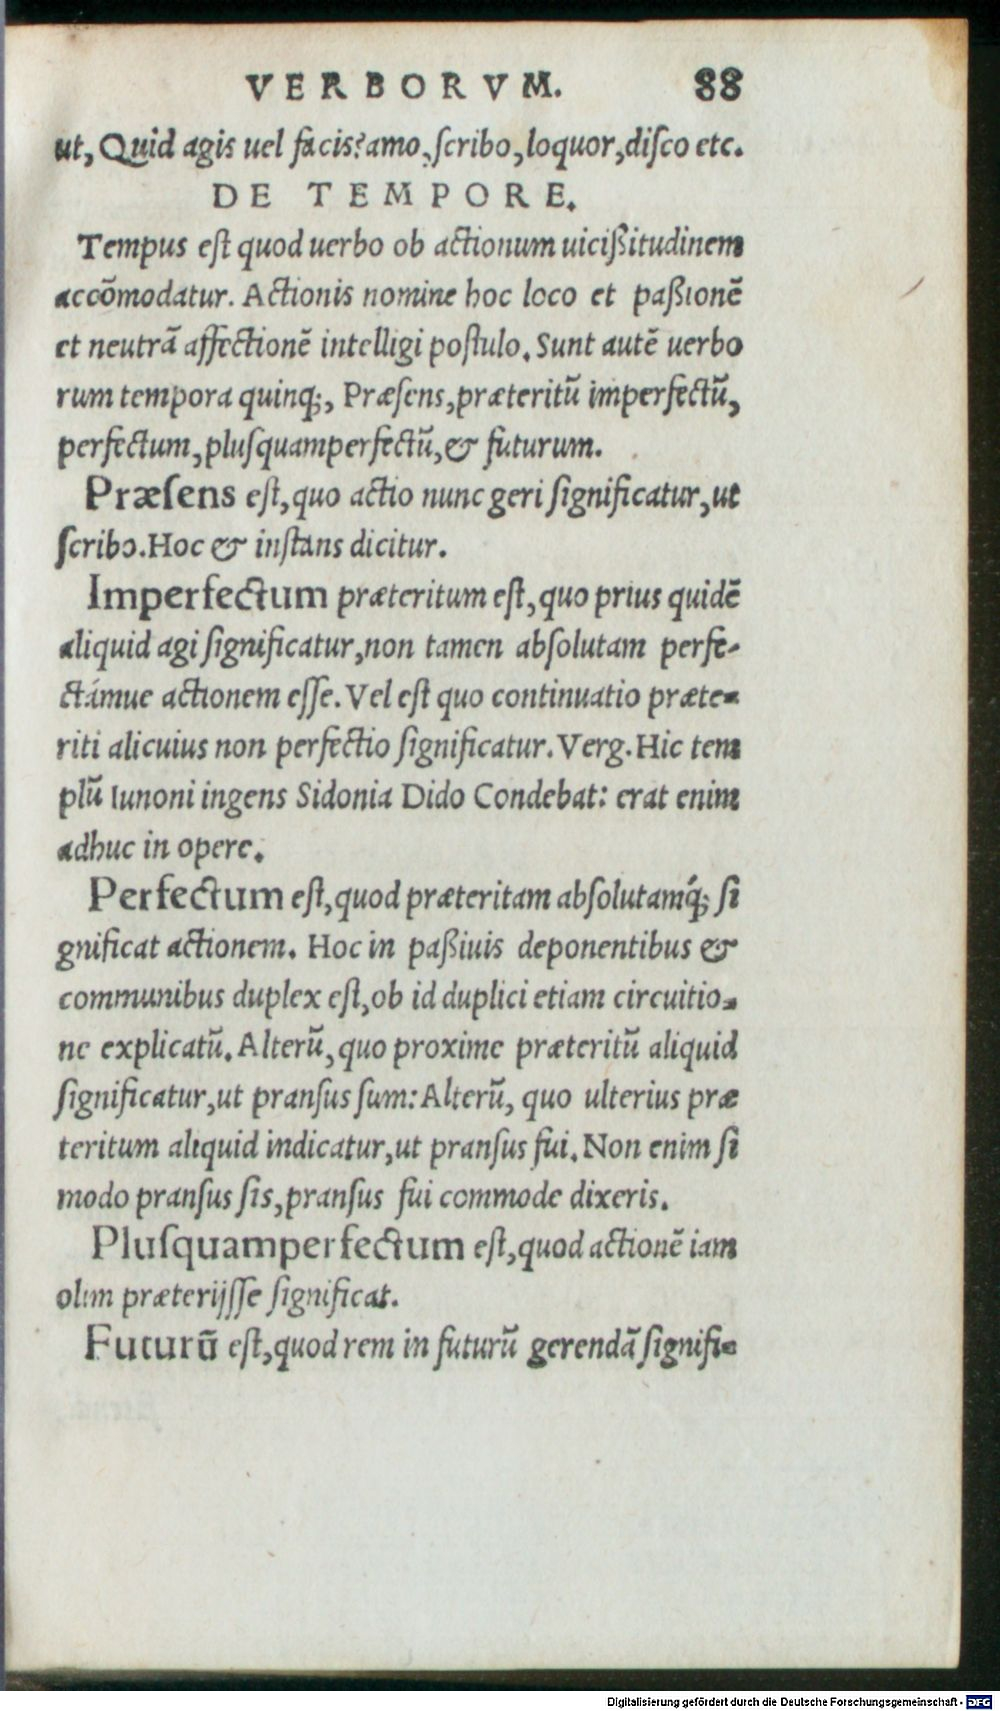 VERBORVM. 88
ut, Quid agis uel facis? amo, ſcribo, loquor, diſco etc.
DE TEMPORE.
Tempus eſt quod uerbo ob actionum uicißitudinem
accōmodatur. Actionis nomine hoc loco et paßionē
et neutrā affectionē intelligi poſtulo. Sunt autē uerbo
rum tempora quinq;, Præſens, præteritū imperfectū,
perfectum, pluſquamperfectū, & futurum.
Præſens eſt, quo actio nunc geri ſignificatur, ut
ſcribo. Hoc & inſtans dicitur.
Imperfectum præteritum eſt, quo prius quidē
aliquid agi ſignificatur, non tamen abſolutam perfe-
ctámue actionem eſſe. Vel eſt quo continuatio præte-
riti alicuius non perfectio ſignificatur. Verg. Hic tem
plū Iunoni ingens Sidonia Dido Condebat: erat enim
adhuc in opere.
Perfectum eſt, quod præteritam abſolutamq́; ſi
gnificat actionem. Hoc in paßiuis deponentibus &
communibus duplex eſt, ob id duplici etiam circuitio-
ne explicatū. Alterū, quo proxime præteritū aliquid
ſignificatur, ut pranſus ſum: Alterū, quo ulterius præ
teritum aliquid indicatur, ut pranſus fui. Non enim ſi
modo pranſus ſis, pranſus fui commode dixeris.
Pluſquamperfectum eſt, quod actionē iam
olim præterijſſe ſignificat.
Futurū eſt, quod rem in futurū gerendā ſignifi-
Digitalisierung gefördert durch die Deutsche Forschungsgemeinschaft - DFG